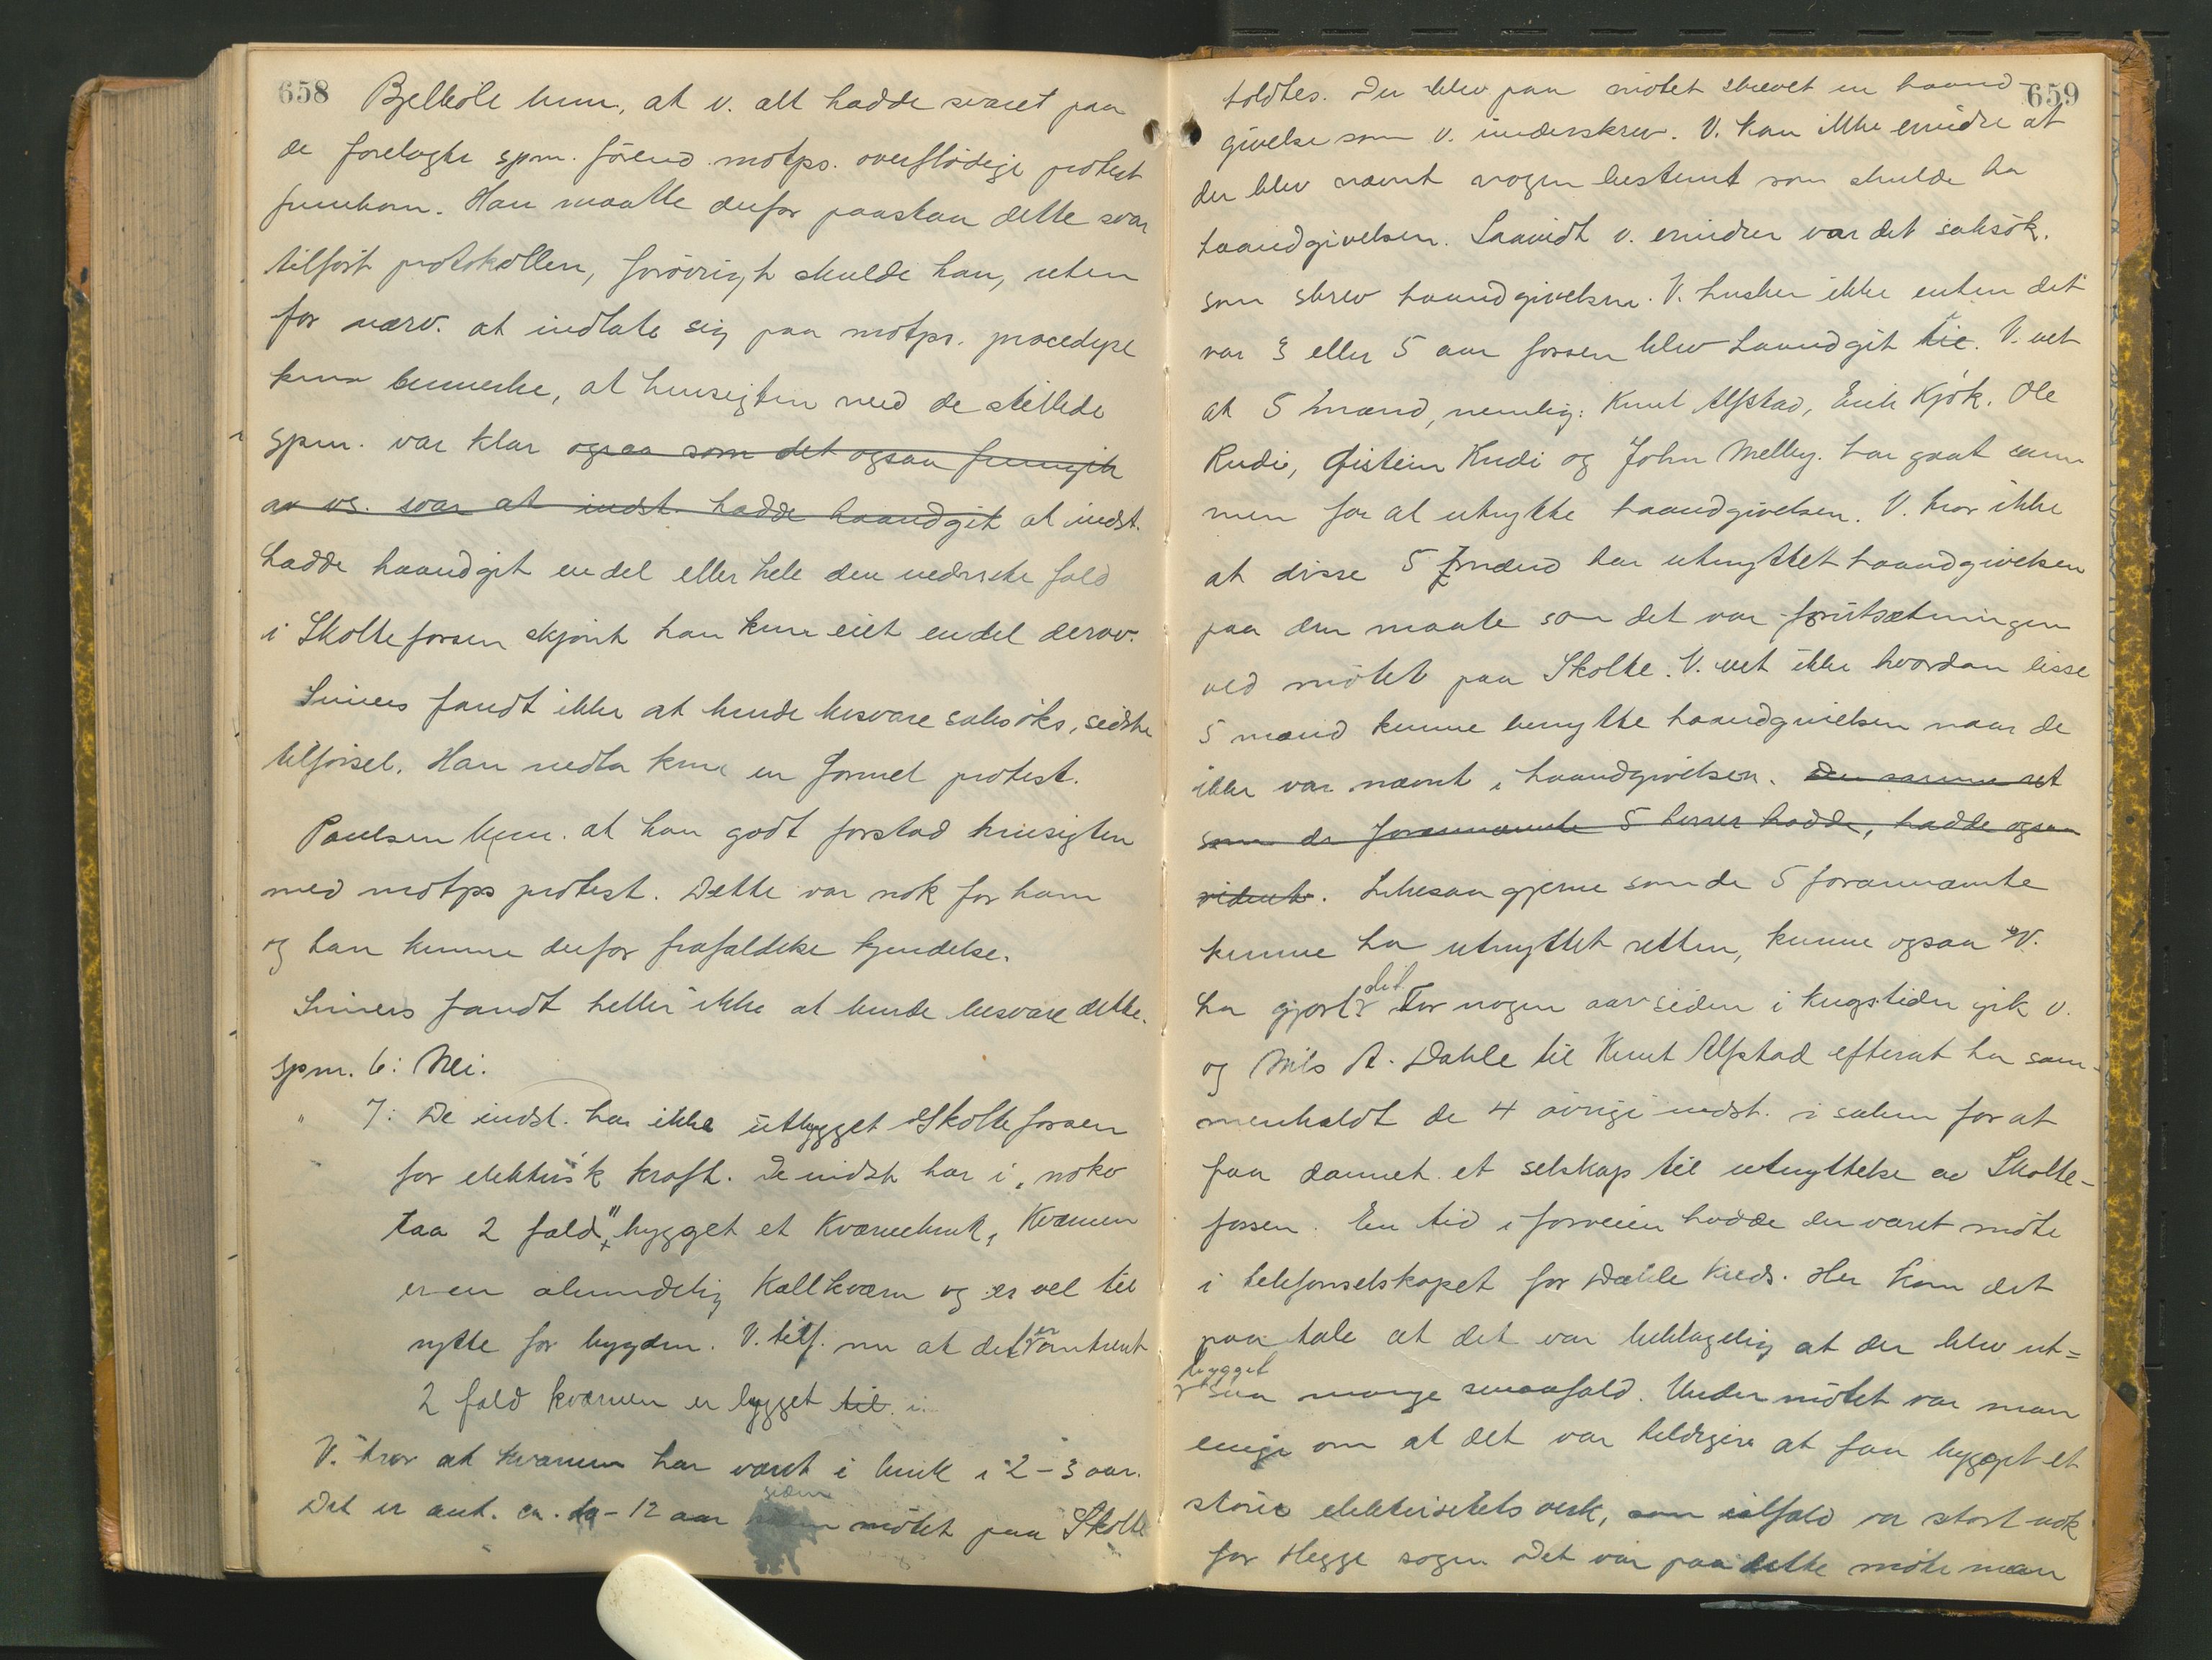 658
Bjelköle bem., at v. alt hadde svaret paa
de forelagte spm. förend motps. overflödige protest
fremkom. Han maatte derfor paastaa dette svar
tilfört protokollen, forövrigt skulde han, uten
for nærv. at indlate sig paa motps. procedyre
kun bemerke, at hensigten med de stillede
spm. var klar ogsaa som det ogsaa fremgik
av vs. svar at indst. hadde haandgit at indst.
hadde haandgit en del eller hele den nederste fald
i Skoltefossen skjönt han kun eiet en del derav.
Sivers fandt ikke at burde besvare saksöks. sidste
tilförsel. Han nedla kun en formel protest.
Paulsen bem. at han godt forstod hensigten
med motps protest. Dette var nok for ham
og han kunne derfor frafaldeke kjendelse.
Sivers fandt heller ikke at burde besvare dette.
spm. 6: Nei.
" 7: De indst. har ikke utbygget Skoltefossen
for elektrisk kraft. De indst har i "noko
taa 2 fald" bygget et kværnebruk, Kværnen
er en alm​indelig Kallkværn og er vel til
nytte for bygden. V. tilf. nu at det er omtrent
2 fald kværnen er bygget til. i.
V. tror at kværnen har været i bruk i 2-3 aar.
Det er ant. ca. 10-12 aar siden mötet paa Skolte
659
holdtes. Der blev paa mötet skrevet en haand-
givelse som v. underskrev. V. kan ikke erindre at
der blev nævnt nogen bestemt som skulde ha
haandgivelsen. Saavidt v. erindrer var det saksök.
som skrev haandgivelsen. V. husker ikke enten det
var 3 eller 5 aar fossen blev haandgit tie. V. vet
at 5 mænd, nemlig: Knut Alfstad, Erik Kjök. Ole
Rudi, Øistein Rudi og John Melby. har gaat sam
men for at utnytte haandgivelsen. V. tror ikke
at disse 5 mænd har utnyttet haandgivelsen
paa den maate som det var forutsætningen
ved mötet paa Skolte. V. vet ikke hvordan disse
5 mænd kunne benytte haandgivelsen naar de
ikke var nævnt i haandgivelsen. Den samme ret
som de forannævnte 5 herrer hadde, hadde ogsaa
vidnet. Likesaa gjerne som de 5 forannævnte
kunne ha utnyttet retten, kunne ogsaa V.
ha gjort det. For nogen aar siden i krigstiden gik v.
og Nils A. Dahle til Knut Alfstad efterat ha sam-
menkaldt de 4 övrige indst. i saken for at
faa dannet et selskap til utnyttelse av Skolte-
fossen. En tid i forveien hadde der været möte
i telefonselskapet for Dahle kreds. Her kom det
paa tale at det var beklagelig at der blev ut=
bygget saa mange smaafald. Under mötet var man
enige om at det var heldigere at faa bygget et
större elektrisitetsverk, som ialfald var stort nok
for Hegge sogn. Det var paa dette möte man